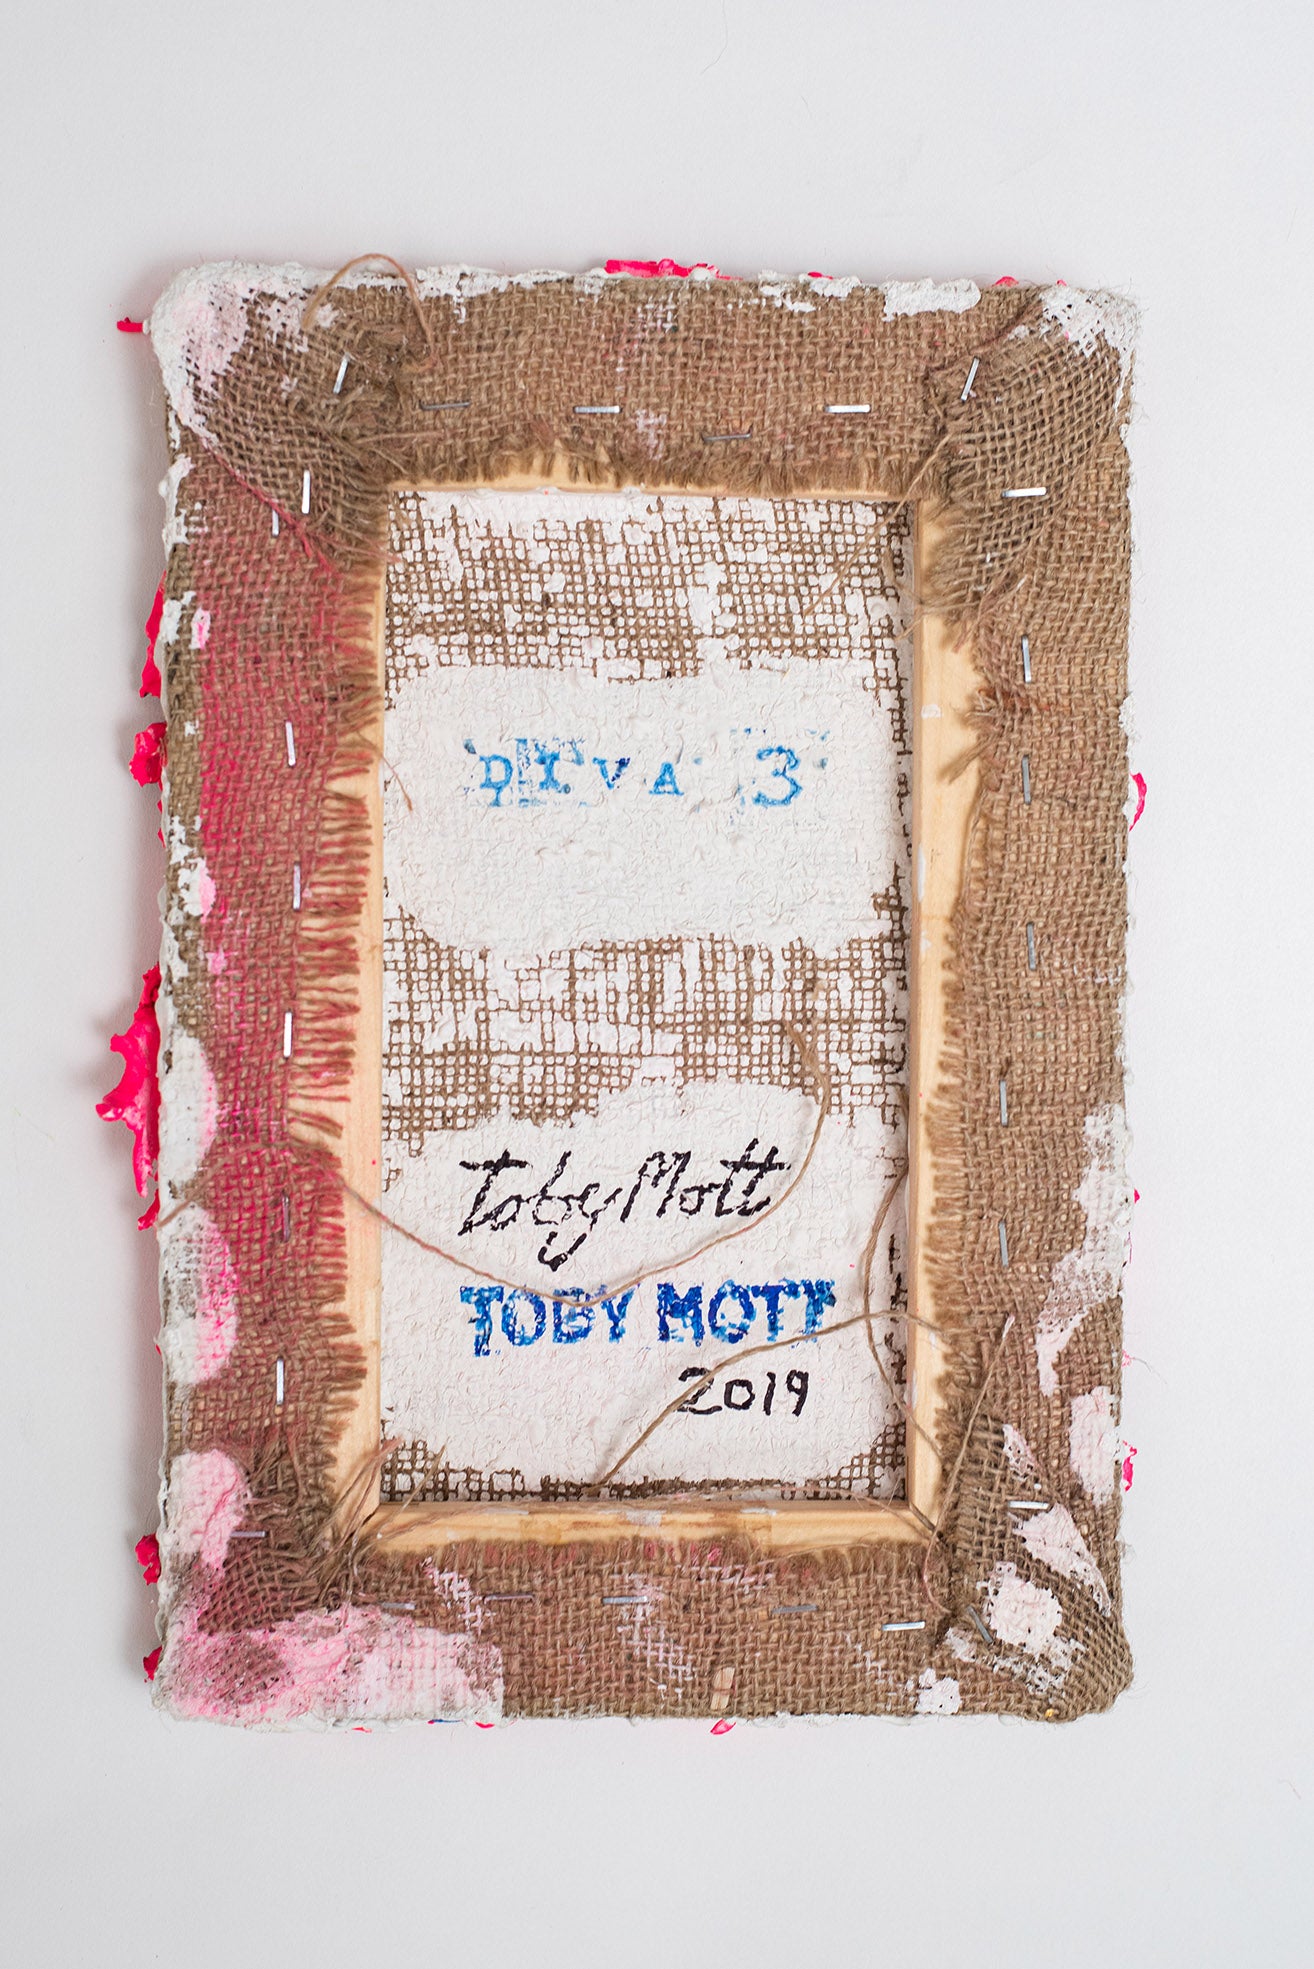 DIVA 3
Toby Mott
TOBY MOTT
2019